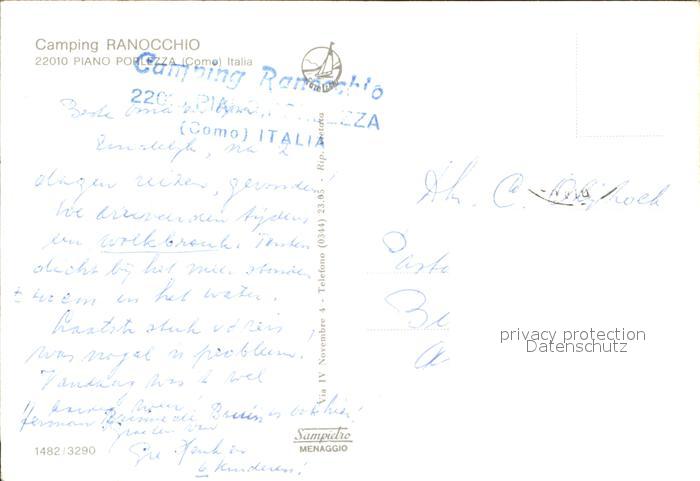 Camping RANOCCHIO
22010 PIANO PORLEZZA (Como) Italia
Camping Ranocchio
220 PIANO PORLEZZA
(Como) ITALIA
Beste oma
Eindelijk, na 2
dagen reizen, gevonden!
We arriveerden tijdens
een wolkbreuk. Tenten
dicht bij het meer stonden
± 10 cm in het water.
Laatste stuk v d reis
was nogal 'n probleem.
Vandaag was 't wel
weer!
Herman Bruin is ook hier!
Groeten van
Henk en
kinderen!
Via IV Novembre 4 - Telefono (0344) 23.05 - Rip. vietata
Sampietro
MENAGGIO
1482/3290
Dhr. C.
privacy protection
Datenschutz